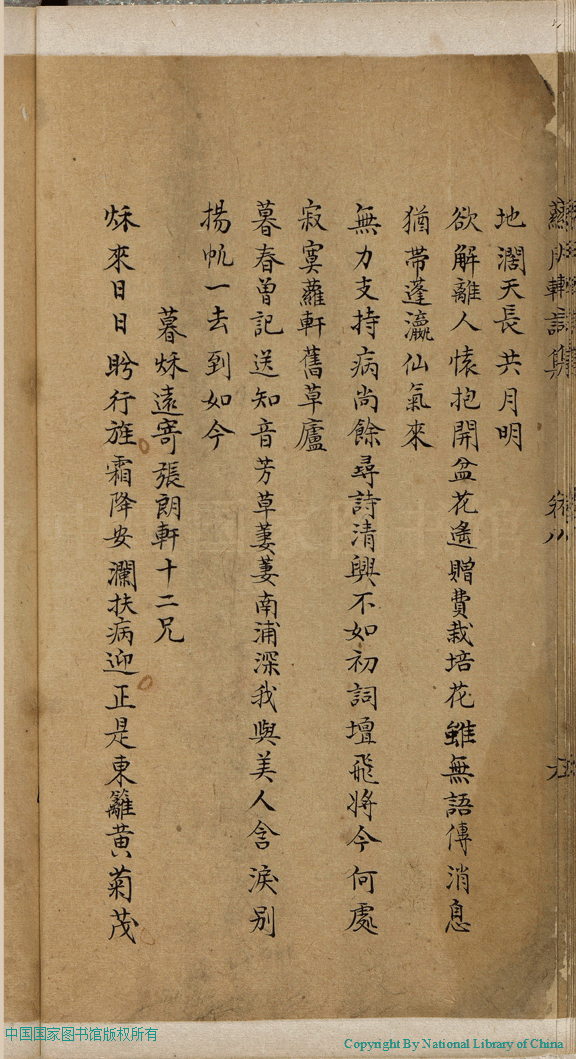 地濶天長共月明
欲解離人懐抱開盆花遙贈費栽培花雖無語傳消息
猶帶蓬瀛仙氣來
無力支持病尚餘尋詩清興不如初詞壇飛將今何處
寂寞蘿軒舊草廬
暮春曾記送知音芳草萋萋南浦深我與美人含淚別
揚帆一去到如今
暮秌遠寄張朗軒十二兄
秌來日日盻行旌霜降安瀾扶病迎正是東籬黃菊茂
中国国家图书馆版权所有
Copyright By National Library of China